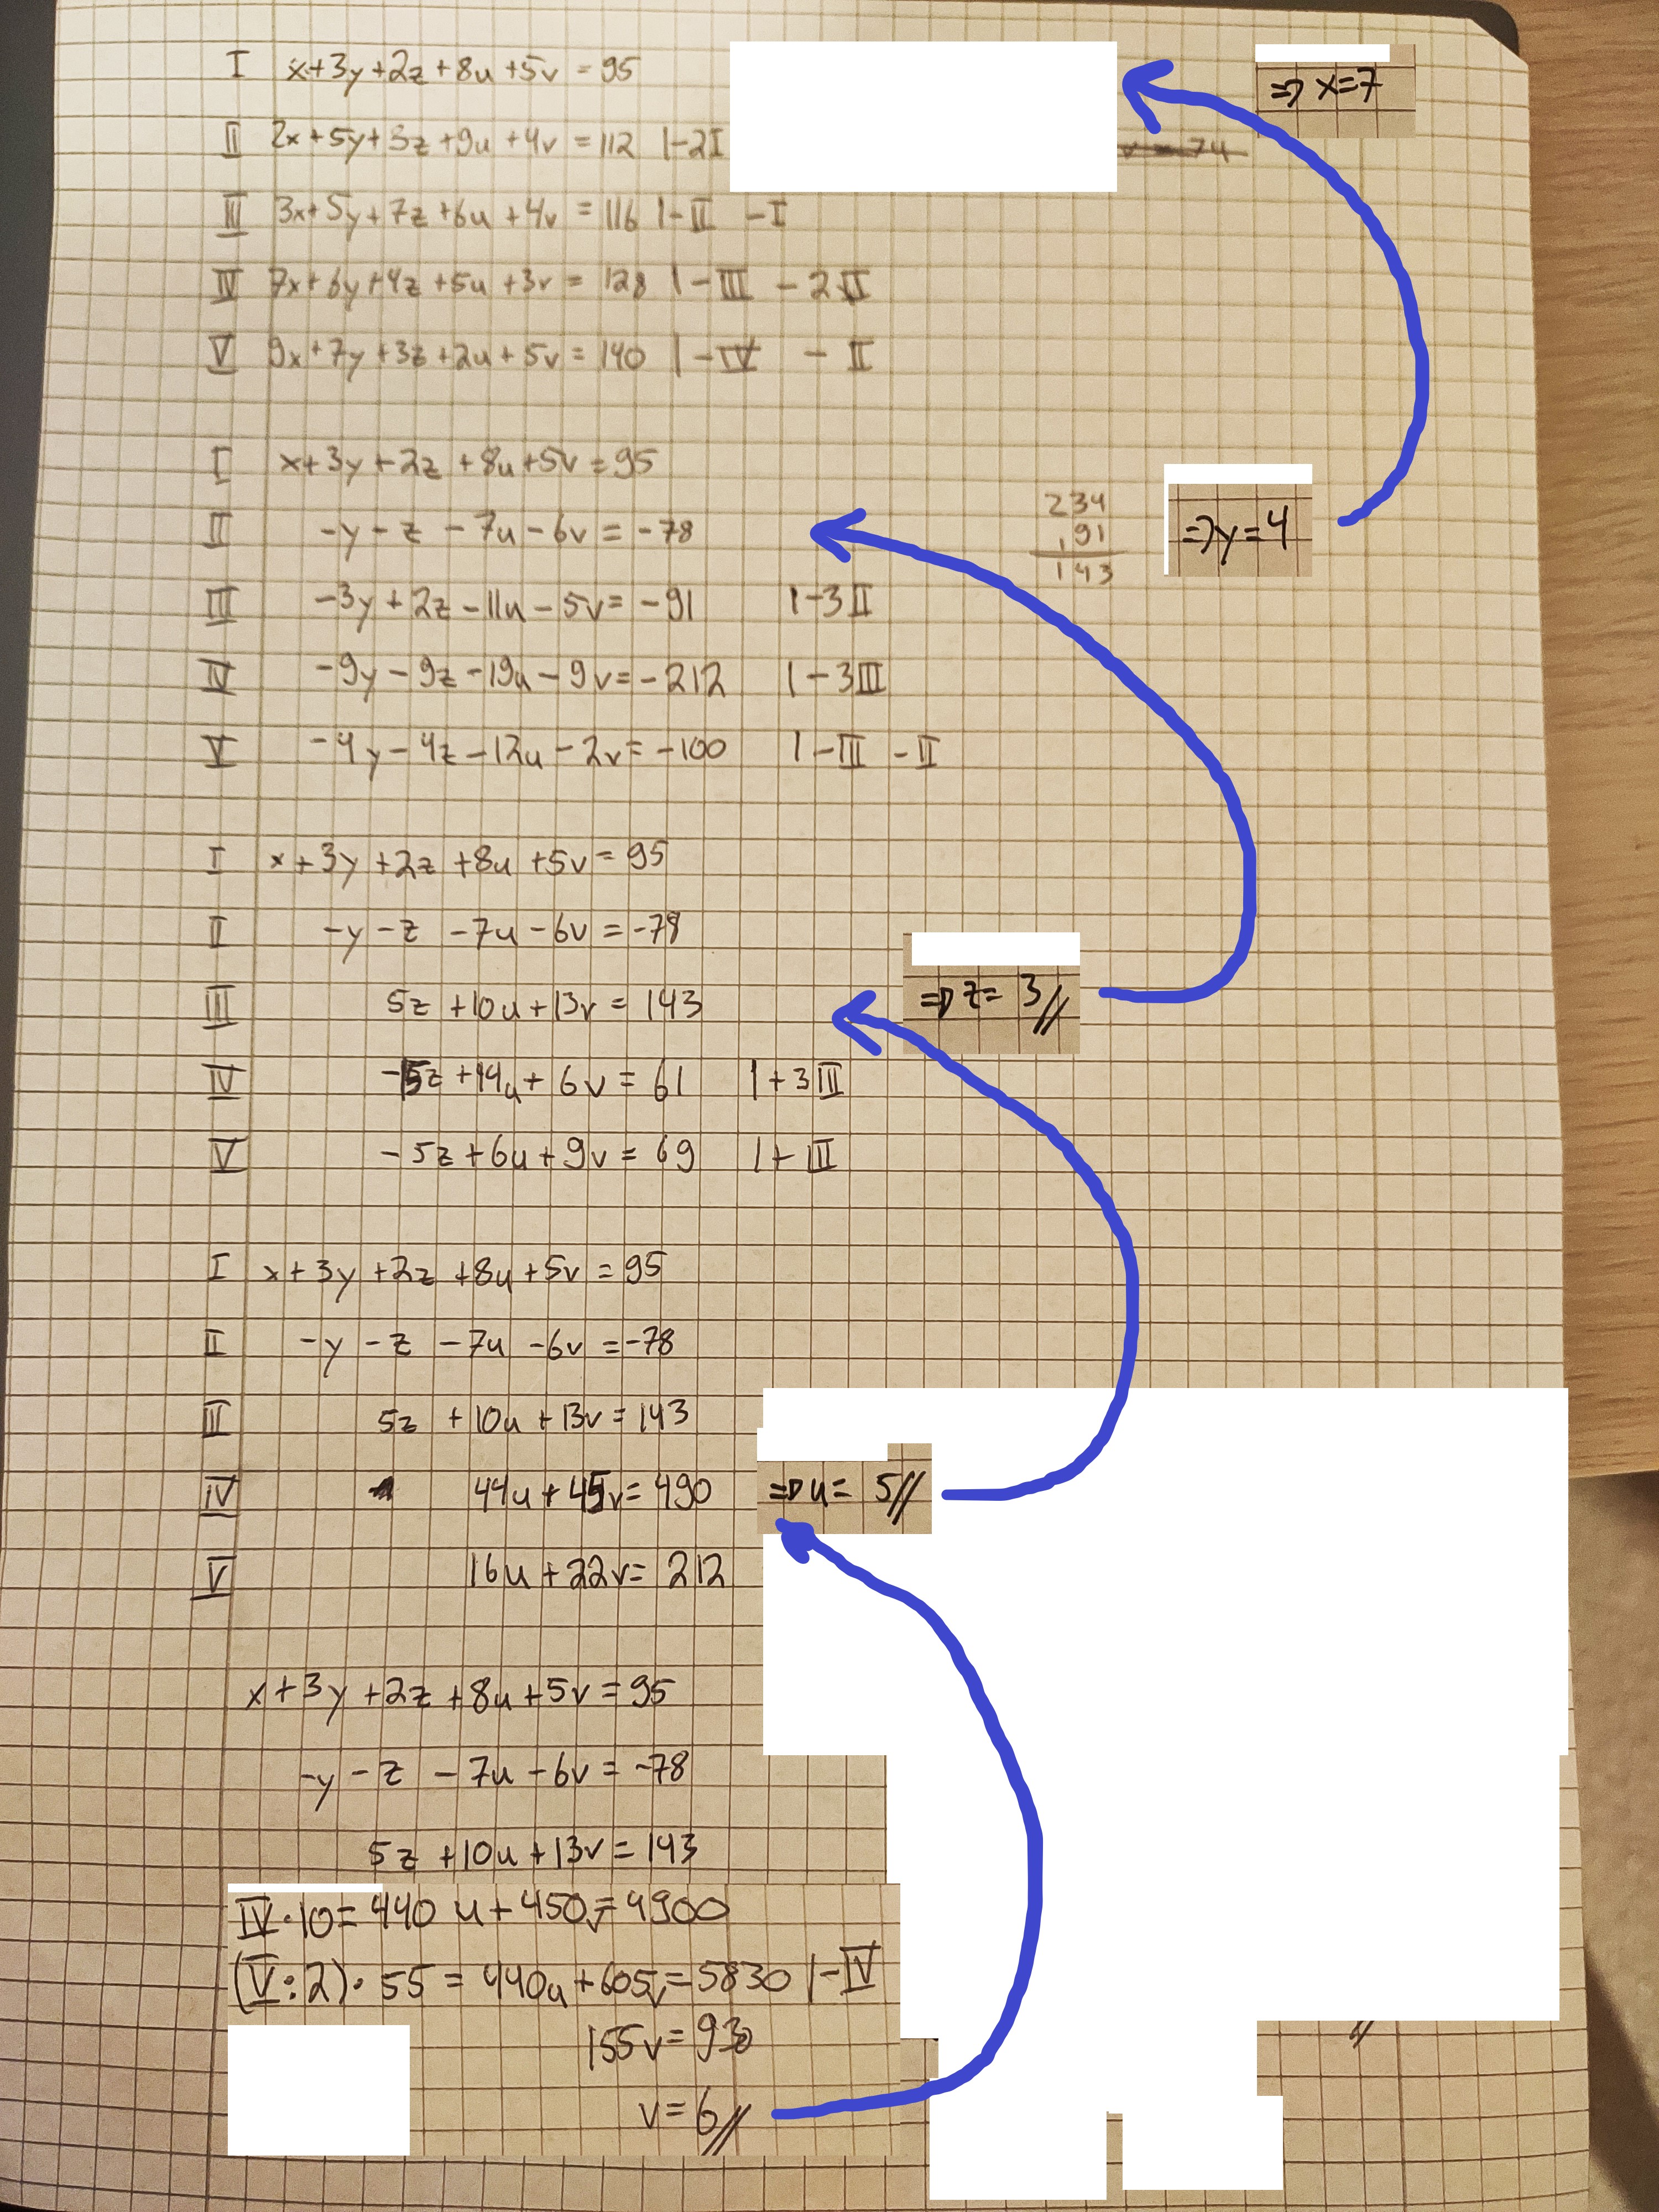 I x+3y+2z+8u+5v=95 => x=7
II 2x+5y+3z+9u+4v=112 |-2I
III 3x+5y+7z+6u+4v=116 |-II -I
IV 7x+6y+4z+5u+3v=128 |-III -2II
V 9x+7y+3z+2u+5v=140 |-IV -II
I x+3y+2z+8u+5v=95
234
II -y-z-7u-6v=-78 91 =>y=4
143
III -3y+2z-11u-5v=-91 |-3II
IV -9y-9z-19u-9v=-212 |-3III
V -4y-4z-12u-2v=-100 |-III -II
I x+3y+2z+8u+5v=95
II -y-z-7u-6v=-78
III 5z+10u+13v=143 => z=3//
IV -15z+14u+6v=61 |+3III
V -5z+6u+9v=69 |+III
I x+3y+2z+8u+5v=95
II -y-z-7u-6v=-78
III 5z+10u+13v=143
IV 44u+45v=490 => u=5//
V 16u+22v=212
x+3y+2z+8u+5v=95
-y-z-7u-6v=-78
5z+10u+13v=143
IV·10=440u+450v=4900
(V:2)·55=440u+605v=5830 |-IV
155v=930
v=6//